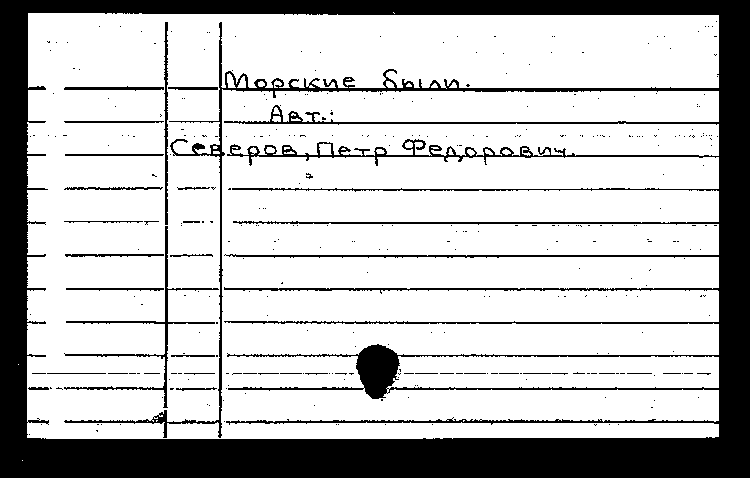 Морские были.
Авт.:
Северов, Петр Федорович.